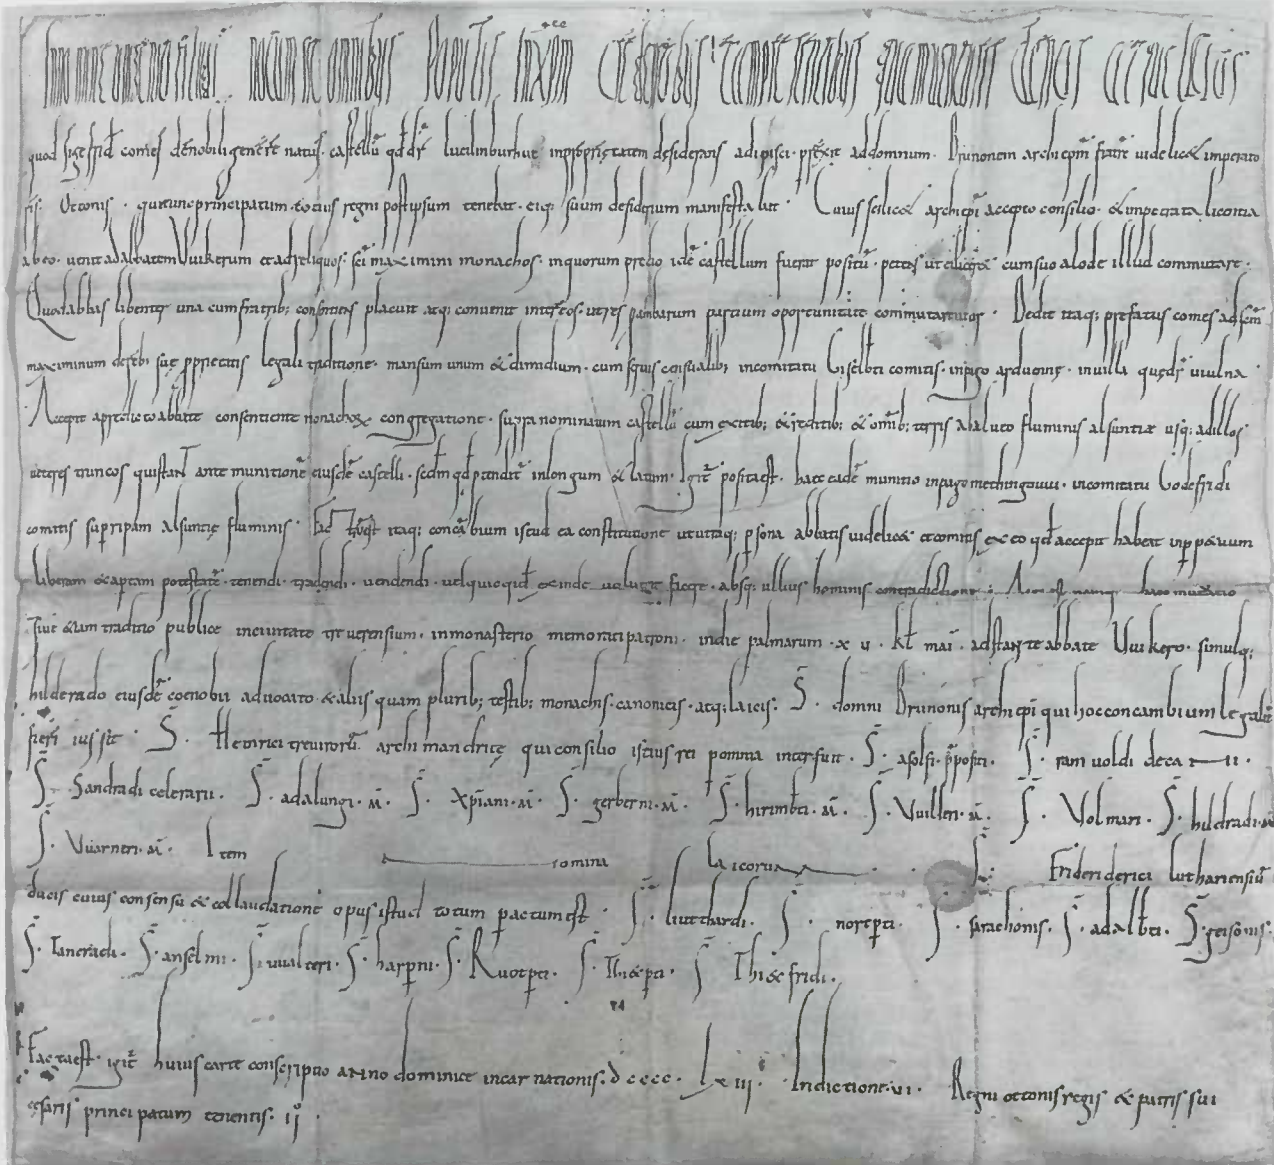 In nomine omnipotentis dei notum sit omnibus populis in xpm credentibus tam presentibus quam futuris
quod sigefrid comes de nobili genere natus castellu qd dr lucilinburhuc in proprietatem desiderans adipisci · prexit ad domnum · Brunonem archiepm fratre videlicet imperato
ris · Ottonis · qui tunc principatum · totius regni post ipsum tenebat · eiq; suum desiderium manifestavit · Cuius scilicet archiepi accepto consilio · & impetrata licentia
ab eo · venit ad abbatem Uuikerum et ad reliquos · sci maximini monachos · in quorum predio ide castellum fuerat positu · petens ut ei liceret cum suo alode illud commutare ·
Quod abbas libenter una cum fratrib; consentiens placuit atq; convenit inter eos · ut res ambarum partium oportunitate commutarentur · Dedit itaq; prefatus comes ad scm
maximinum de reb; sue pprietatis legali traditione · mansum unum & dimidium · cum servis censualib; in comitatu Giselbti comitis · in pago arduenne · in villa que dr viulna ·
Accepit a predicto abbate consentiente monachorum congregatione · supra nominatum castellu cum exitib; & reditib; & omib; terris ab alveo fluminis alsuntiae usq; ad illos
veteres truncos qui stant ante munitione eiusde castelli · sed qd ptenditr in longum & latum · Igitr posita est · haec eade munitio in pago methingouui · in comitatu Godefridi
comitis sup ripam alsuntie fluminis · Factum est itaq; concabium istud ea constitutione ut utraq; psona abbatis videlicet et comitis ex eo qd accepit habeat in ppetuum
liberam & aptam potestate · tenendi · tradendi · vendendi · vel quicqid exinde voluerit facere · absq; ullius hominis contradictione · Acta est namq; haec mutatio
sive etiam traditio publice in civitate treverensium · in monasterio memorati patroni · in die palmarum · xv · kl mai · adstante abbate Uuikero · simulq;
hilderado eiusde coenobii advocato & aliis quam plurib; testib; monachis · canonicis · atq; laicis · S · domni Brunonis archiepi qui hoc concambium legalit
fieri iussit · S · Heinrici treviroru archimandrite qui consilio istius rei pomnia interfuit · S · asolfi · ppositi · S · ramuoldi decani ·
S · Sandradi celerarii · S · adalungi · m · S · xpiani · m · S · gerberni · m · S · hirimbti · m · S · Vuilleri · m · S · Volmari · S · hildradi · m
S · Vuarneri · m · Item nomina laicorum · S · Friderici luthariensiu
ducis cuius consensu & collaudatione opus istud totum pactum est · S · liuthardi · S · nortpti · S · sarachonis · S · adalbti · S · geisonis ·
S · Tancradi · S · anselmi · S · vualteri · S · harpni · S · Ruotpti · S · Thietpti · S Thietfridi ·
Facta est · igitr huius carte conscriptio anno dominice incarnationis · dcccc · lxiii · Indictione · vi · Regni ottonis regis & patris sui
cesaris principatum tenentis · ii ·